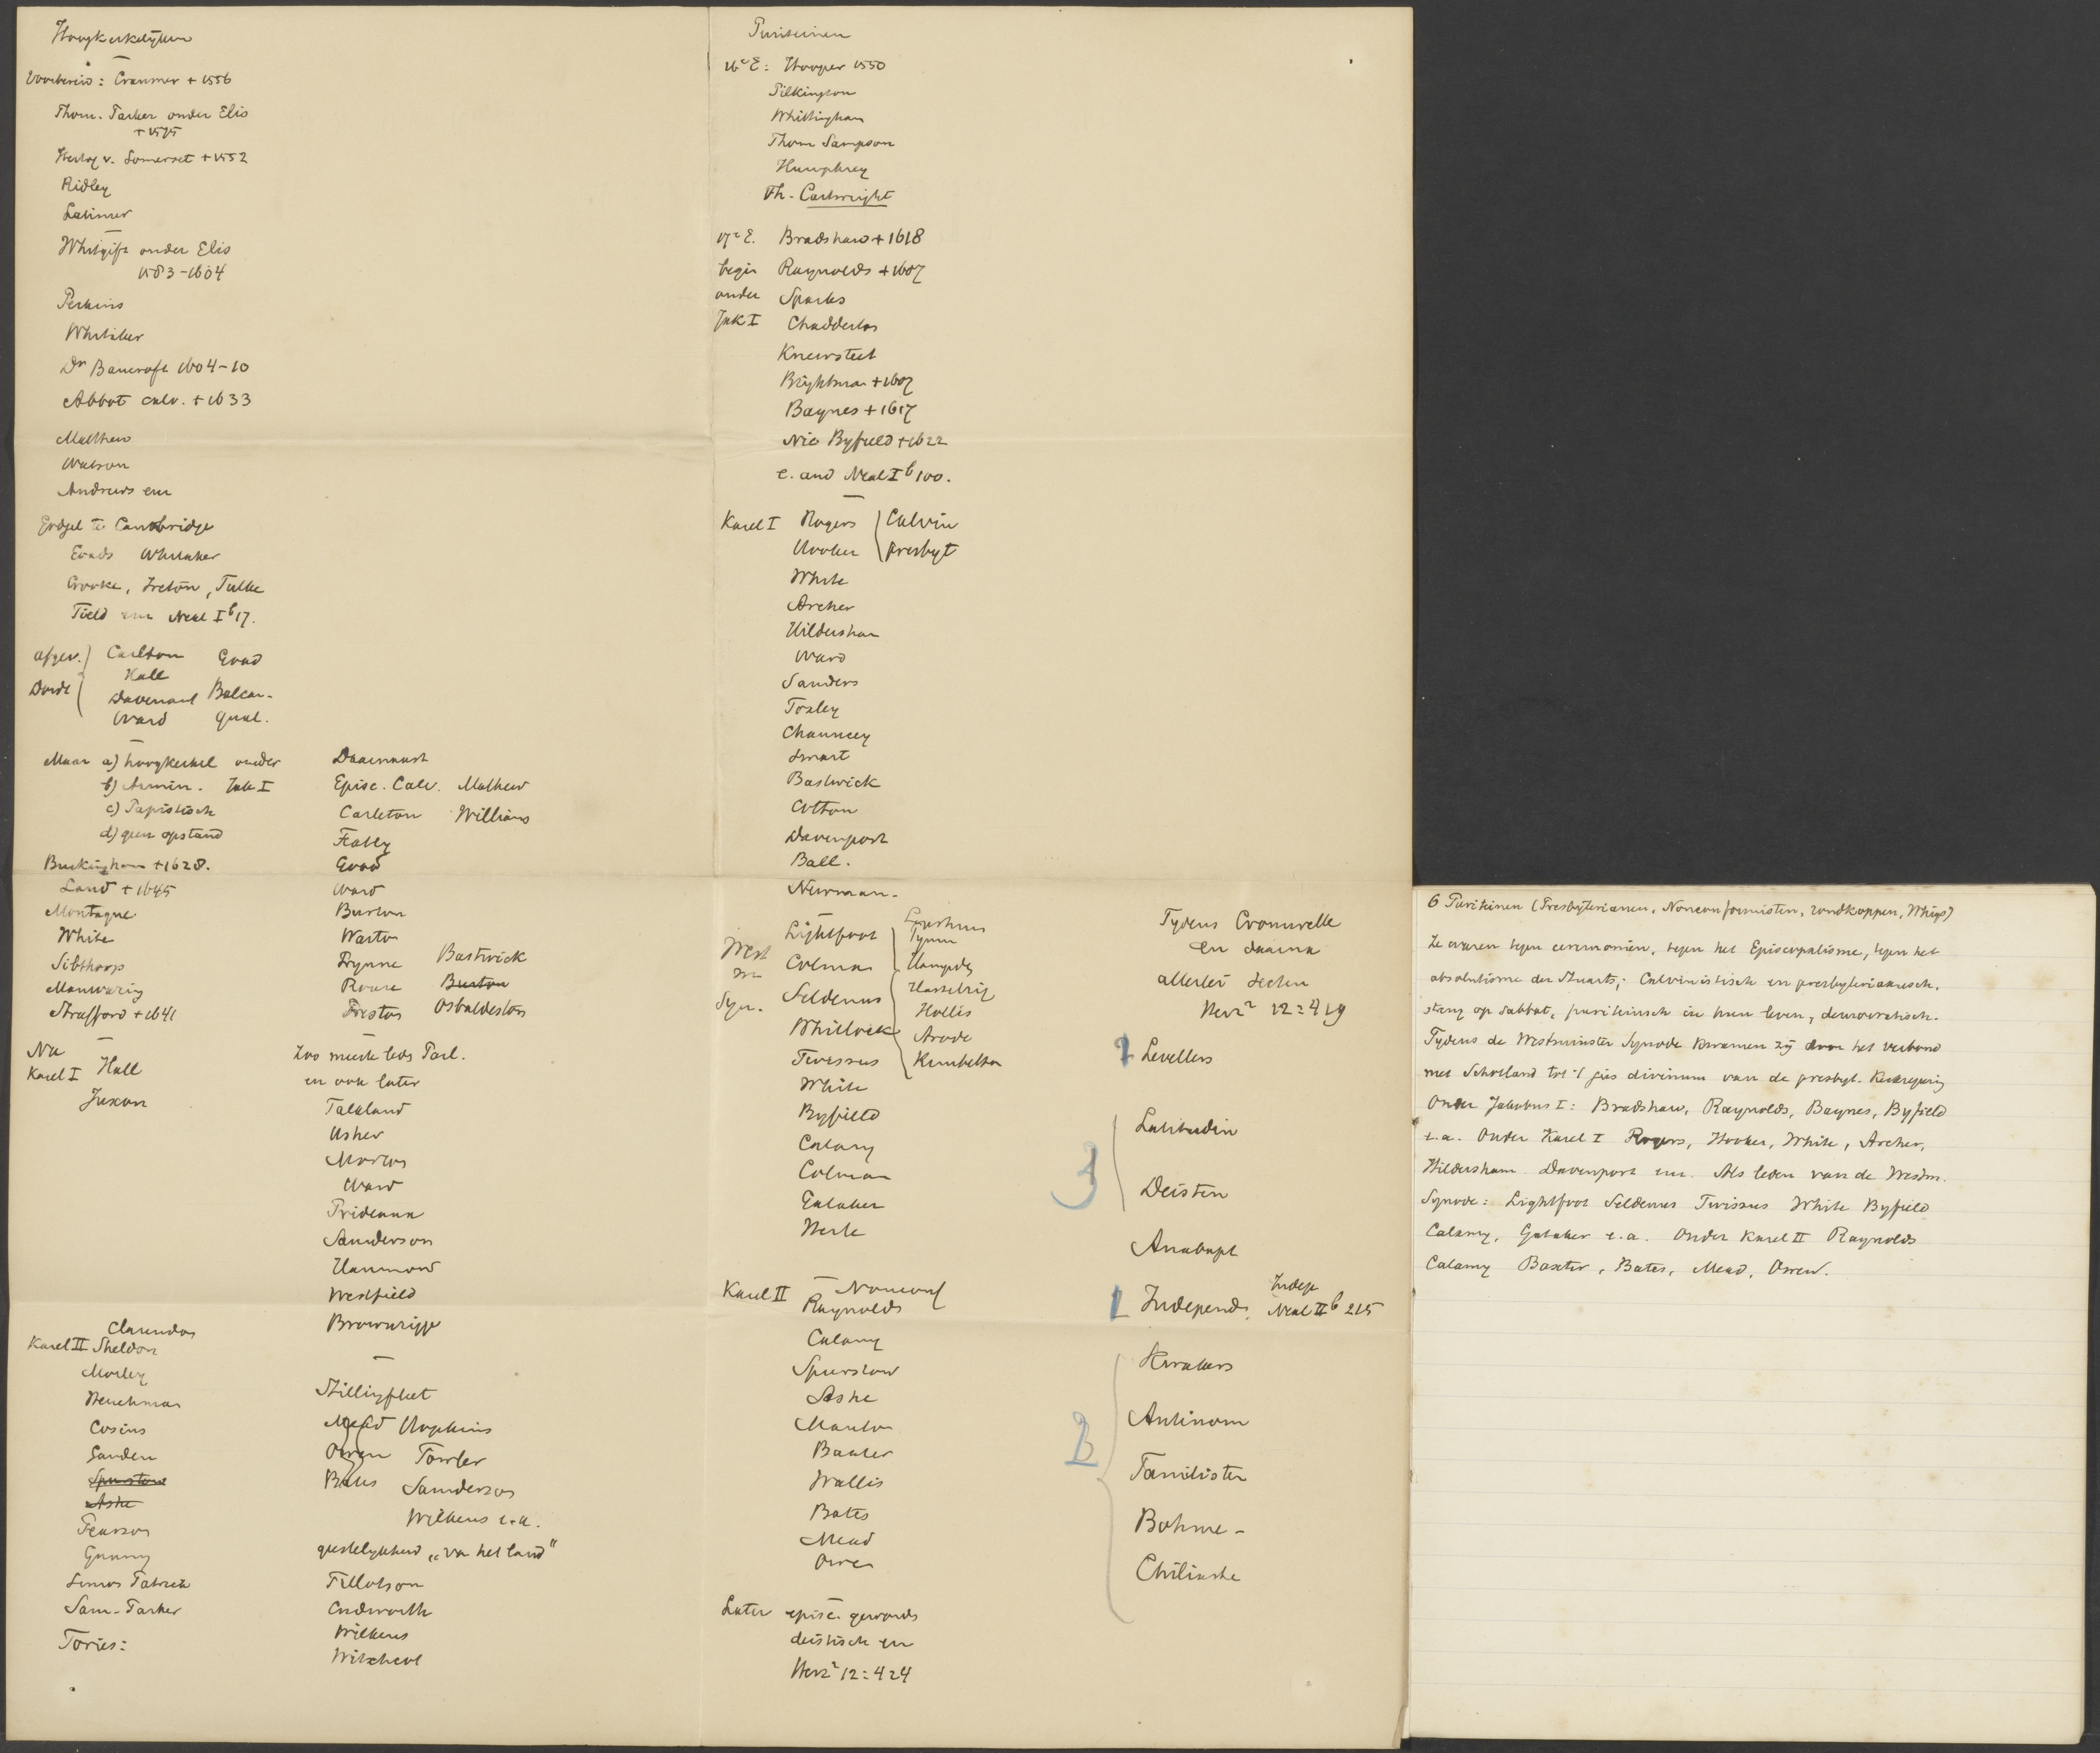 Hoogkerkelijken
Voorbereid: Cranmer + 1556
Thom. Parker onder Elis
+ 1575
Hertog v. Somerset + 1552
Ridley
Latimer
Whitgift onder Elis
1583-1604
Perkins
Whitaker
Dr Bancroft 1604-10
Abbot calv. + 1633
Mathew
Watson
Andrews enz
Godgel te Cambridge
Eoads Whitaker
Crooke, Ireton, Fulke
Field enz Neal I b 17.
afgev. Carlton Goad
Hall
Dordt Davenant Balcan-
Ward qual.
Maar a) hoogkerkel onder
b) Armin. Jak I
c) Papistisch
d) geen opstand
Buckingham + 1628.
Laud + 1645
Montague
White
Sibthorp
Manwaring
Strafford + 1641
Daarnaast
Episc. Calv. Mathew
Carleton Williams
Featly
Goad
Ward
Burton
Warton
Prynne Bastwick
Rouse Burton
Preston Osbaldeston
Na
Karel I Hall
Juxon
Zoo meeste leds Parl.
en ook later
Falkland
Usher
Morton
Ward
Prideaux
Sanderson
Hammond
Westfield
Brownrigge
Clarendon
Karel II Sheldon
Morley
Henchman
Cosins
Gauden
Spurstow
Ashe
Pearson
Gunny
Simon Patrick
Sam. Parker
Tories:
Stillingfleet
Mead Hopkins
Owen Fowler
Bates Sanderson
Wilkens e.a.
geestelijkheid „van het land"
Tillotson
Cudworth
Wilkens
Witchcot
Puriteinen
16e E: Hooper 1550
Pilkington
Whittingham
Thom Sampson
Humphrey
Th. Cartwright
17e E. Bradshaw + 1618
begin Raynolds + 1607
onder Sparks
Jak I Chadderton
Knewsteet
Brightman + 1607
Baynes + 1617
Nic Byfield + 1622
e. and Neal I b 100.
Karel I Rogers Calvin
Hooker presbyt
White
Archer
Hildersham
Ward
Sanders
Foxley
Chauncey
Smart
Bastwick
Cotton
Davenport
Ball.
Newman.
West Lightfoot
m Colman Pymm
Syn. Seldenus Hampden
Whitlock Hasselrig
Twissus Hollis
White Kimbelton
Byfield
Calamy
Colman
Gataker
Herle
Karel II Nonconf
Raynolds
Calamy
Spurstow
Ashe
Manton
Baxter
Wallis
Bates
Mead
Owen
Later episc. geworden
deistisch en
Herz2 12:424
Tydens Cromwelle
en daarna
allerlei secten
Herz2 12:419
2 Levellers
3 Latitudin
Deisten
Anabapt
1 Independ. Indep
Neal II b 215
2 Kwakers
Antinom
Familisten
Bohme -
Chiliaste
6 Puriteinen (Presbyterianen, Nonconformisten, rondkoppen, Whigs)
Ze waren tegen ceremoniën, tegen het Episcopalisme, tegen het
absolutisme der Stuarts; Calvinistisch en presbyteriaansch,
streng op Sabbat, puriteinsch in hun leven, democratisch.
Tydens de Westminster Synode kwamen zij door het verbond
met Schotland tot 't jus divinum van de presbyt. Kerkregering
Onder Jakobus I: Bradshaw, Raynolds, Baynes, Byfield
e.a. Onder Karel I Rogers, Hooker, White, Archer,
Hildersham Davenport enz. Als leden van de Westm.
Synode: Lightfoot Seldenus Twissus White Byfield
Calamy, Gataker e.a. Onder Karel II Raynolds
Calamy Baxter, Bates, Mead, Owen.